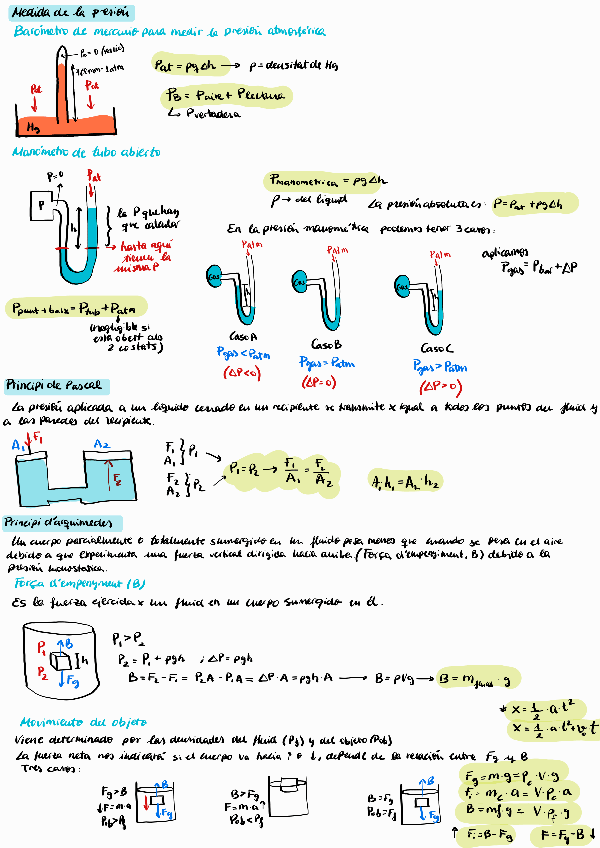 Medida de la presión
Barómetro de mercurio para medir la presión atmosférica
P₀=0 (vacío)
760mm=1atm
Pat
Pat
Hg
Pat = ρgΔh → ρ=densitat de Hg
PB = Paire + Plectura
↳ Pvertadera
Manómetro de tubo abierto
P=0
Pat
P
h
la P que hay que calcular
hasta aquí tienen la misma P
Pmanometrica = ρgΔh
ρ → del líquid
La presión absoluta es: P=Pat+ρgΔh
En la presión manométrica podemos tener 3 casos:
aplicamos
Pgas = Pbar + ΔP
Patm
Patm
Patm
Gas
Gas
Gas
h
h
Caso A
Caso B
Caso C
Pgas<Patm
Pgas=Patm
Pgas>Patm
(ΔP<0)
(ΔP=0)
(ΔP>0)
Ppunt+baix = Ptub + Patm
(negligible si
está obert als
2 costats)
Principi de Pascal
La presión aplicada a un líquido cerrado en un recipiente se transmite x igual a todos los puntos del fluid y
a las paredes del recipiente.
A₁
F₁
A₂
F₂
F₁
A₁
} P₁
F₂
A₂
} P₂
P₁=P₂ → F₁/A₁ = F₂/A₂
A₁h₁=A₂·h₂
Principi d'arquimedes
Un cuerpo parcialmente o totalmente sumergido en un fluido pesa menos que cuando se pesa en el aire
debido a que experimenta una fuerza vertical dirigida hacia arriba (Força d'empenyiment, B) debido a la
presión hidrostática.
Força d'empenyment (B)
Es la fuerza ejercida x un fluid en un cuerpo sumergido en él.
P₁
P₂
B
h
Fg
P₁>P₂
P₂ = P₁ + ρgh ; ΔP=ρgh
B=F₂-F₁ = P₂A-P₁A = ΔP·A = ρgh·A → B=ρVg → B=mfluid·g
* x = 1/2 · a·t²
x = 1/2 · a·t²+v₀·t
Movimiento del objeto
Viene determinado por las densidades del fluid (ρf) y del objeto (ρob)
La fuerza neta nos indicará si el cuerpo va hacia ↑ o ↓, depende de la relación entre Fg y B
Tres casos:
Fg>B
↓F=m·a
ρob>ρf
B
Fg
B>Fg
F=m·a↑
ρob<ρf
B=Fg
ρob=ρf
B
Fg
Fg=m·g=ρc·V·g
F=mc·a=V·ρc·a
B=mf·g = V·ρf·g
↑ F=B-Fg
F=Fg-B ↓